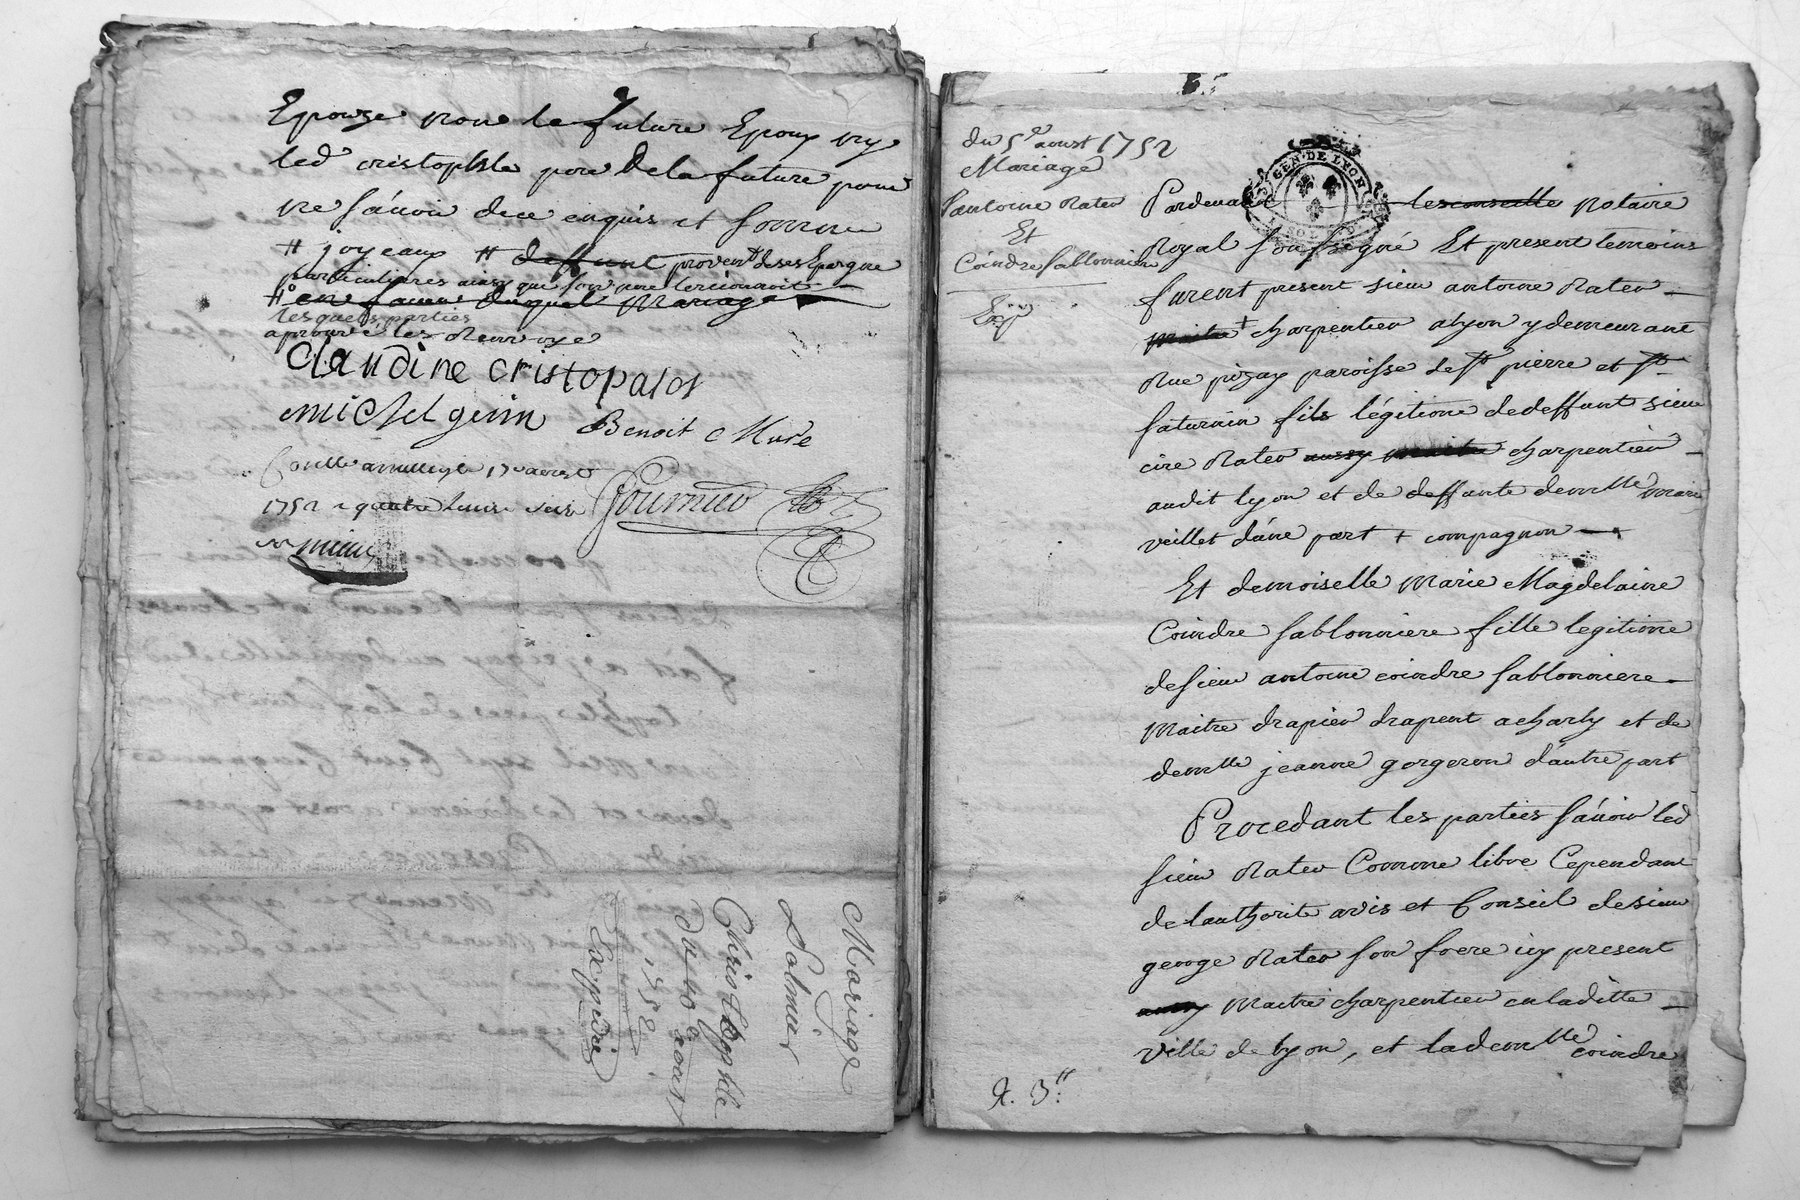 Epouze non le future Epoux ny
led cristophle pere dela future pour
ne sávoir dece enquis et somme
# joyeaux # deffunt provent deses Epargne
particulieres ainsy que son pere
#° en faveur duquel mariage
lesquels parties
aprouvé les Renvoye
claudine cristopalot
michel guin Benoit Mure
Conllé a millery le 17 aoust
1752 r quatre livres seize
Fournier
Mariage
Salmier
Christophle
Du 10e aoust
1752
Expédié
du 5e aoust 1752
Mariage
antoine Rater
Et
Coindre sablonniere
Exp
GEN. DE LYON
Pardevant les conseille Notaire
Royal soussigné Et present temoins
furent present sieur antoine Rater
maitre + charpentier a lyon y demeurant
Rue pizay paroisse de st pierre et st
saturnin fils légitime dedeffunt sieur
cire Rater aussy maitre charpentier
audit lyon et de deffunte demlle marie
veillet d'úne part + compagnon
Et demoiselle Marie Magdelaine
Coindre sablonniere fille legitime
desieur antoine coindre sablonniere
Maitre drapier drapent a charly et de
demlle jeanne gorgeron d'autre part
Procedant les parties sávoir led
sieur Rater Comme libre Cependant
de lauthorite avis et Conseil desieur
george Rater son frere icy present
aussy Maitre charpentier en laditte
ville de lyon, et lademlle coindre
R. 3.#